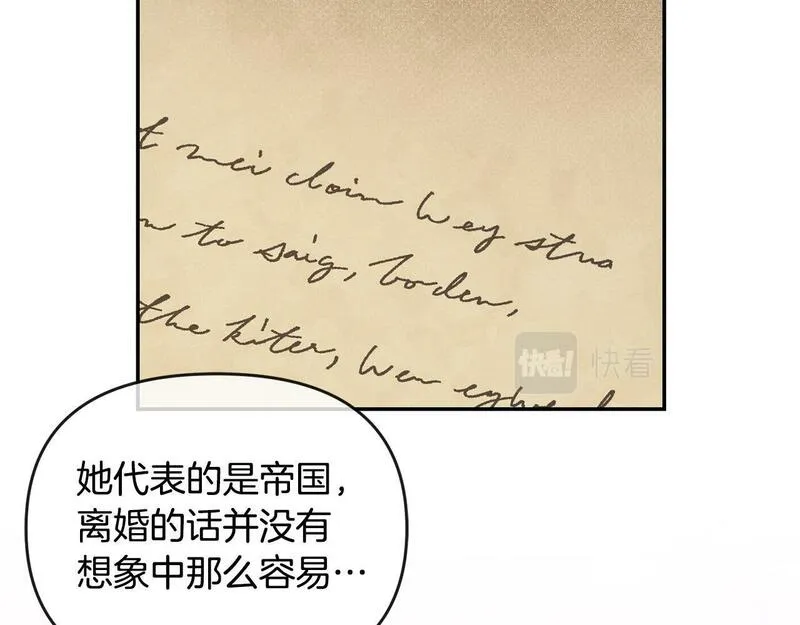 t mei cloin Wey stua
n to saig, boden,
the kiter, Wen
快看! 快看
她代表的是帝国，
离婚的话并没有
想象中那么容易…